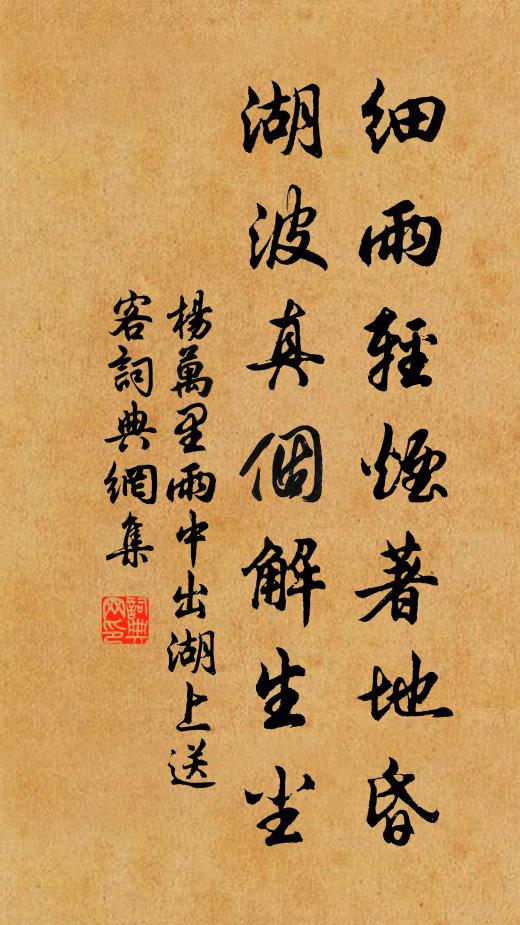 細雨輕煙著地昏
湖波真個解生尘
楊萬里雨中出湖上送
客詞典網集
詞典
网印